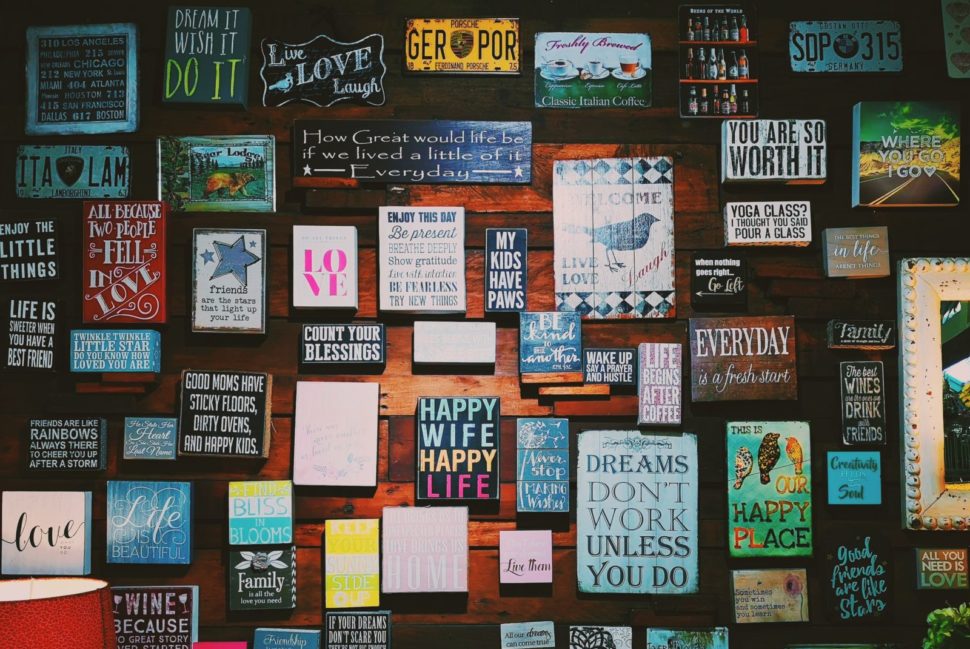 310 LOS ANGELES
PHILADELPHIA 215
303 DENVER CHICAGO
212 NEW YORK
MIAMI 404 ATLANTA
HOUSTON 713
415 SAN FRANCISCO
DALLAS 617 BOSTON
DREAM IT
WISH IT
DO IT
Live
LOVE
Laugh
PORSCHE
GER POR
FERDINAND PORSCHE
Freshly Brewed
Classic Italian Coffee
BEERS OF THE WORLD
SDP 315
GERMANY
ITALY
ITA LAM
LAMBORGHINI
Lodge
How Great would life be
if we lived a little of it
Everyday
YOU ARE SO
WORTH IT
WHERE
YOU GO
I GO
ENJOY THE
LITTLE
THINGS
ALL BECAUSE
TWO PEOPLE
FELL
IN
LOVE
friends
are the stars
that light up
your life
LO
VE
ENJOY THIS DAY
Be present
BREATHE DEEPLY
Show gratitude
Live with intention
BE FEARLESS
TRY NEW THINGS
MY
KIDS
HAVE
PAWS
WELCOME
LIVE
LOVE
Laugh
YOGA CLASS?
I THOUGHT YOU SAID
POUR A CLASS
when nothing
goes right...
Go Left
THE BEST THINGS
in life
ARENT THINGS
LIFE IS
SWEETER WHEN
YOU HAVE A
BEST FRIEND
TWINKLE TWINKLE
LITTLE STAR
DO YOU KNOW HOW
LOVED YOU ARE
COUNT YOUR
BLESSINGS
BE
kind
to
one
another
WAKE UP
SAY A PRAYER
AND HUSTLE
LIFE
BEGINS
AFTER
COFFEE
EVERYDAY
is a fresh start
Family
The best
WINES
are the ones we
DRINK
with
FRIENDS
GOOD MOMS HAVE
STICKY FLOORS,
DIRTY OVENS,
AND HAPPY KIDS.
FRIENDS ARE LIKE
RAINBOWS
ALWAYS THERE
TO CHEER YOU UP
AFTER A STORM
Heart
Last Name
HAPPY
WIFE
HAPPY
LIFE
Never
stop
MAKING
Wishes
DREAMS
DON'T
WORK
UNLESS
YOU DO
THIS IS
OUR
HAPPY
PLACE
Creativity
Soul
love
Life
IS
BEAUTIFUL
BLISS
IN
BLOOMS
Family
is all the
love you need
KEEP
YOUR
SUNNY
SIDE
UP
HOME
Live them
Sometimes
you win
and sometimes
you learn
Good
friends
are like
Stars
ALL YOU
NEED IS
LOVE
WINE
BECAUSE
NO GREAT STORY
EVER STARTED
Friendship
IF YOUR DREAMS
DON'T SCARE YOU
All our dreams
can come true